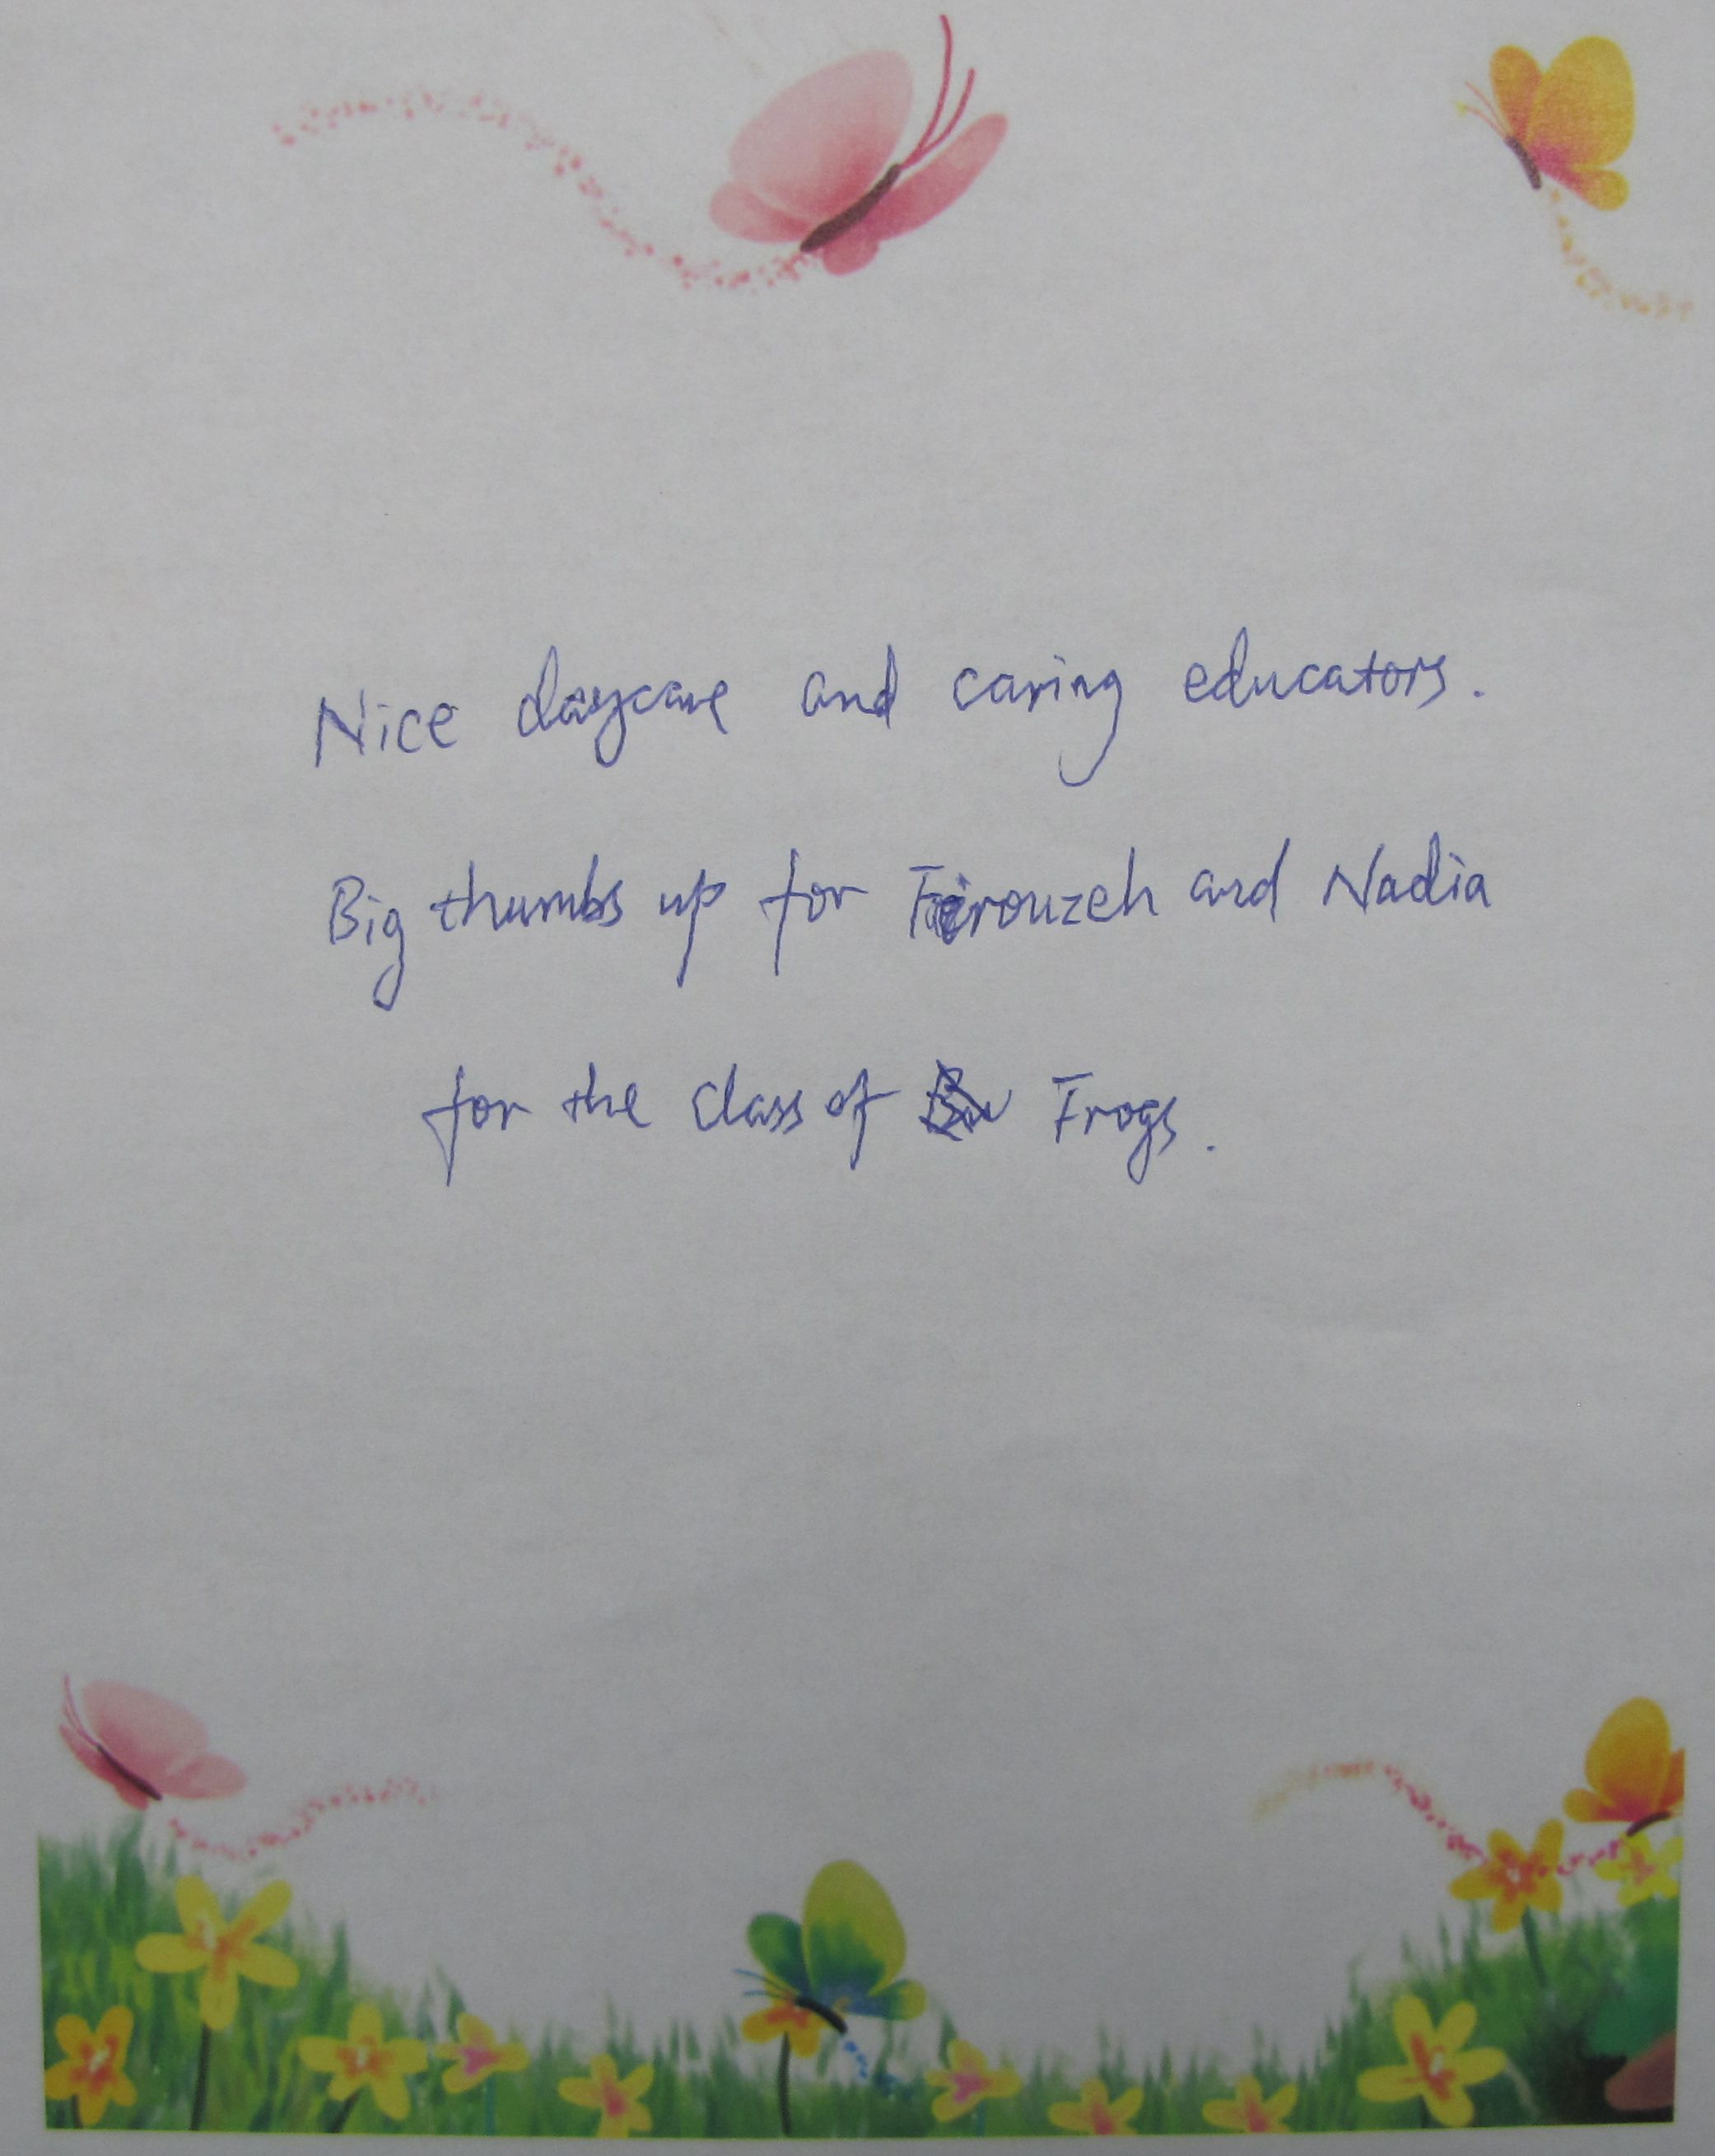 Nice daycare and caring educators.
Big thumbs up for Firouzeh and Nadia
for the class of Frogs.